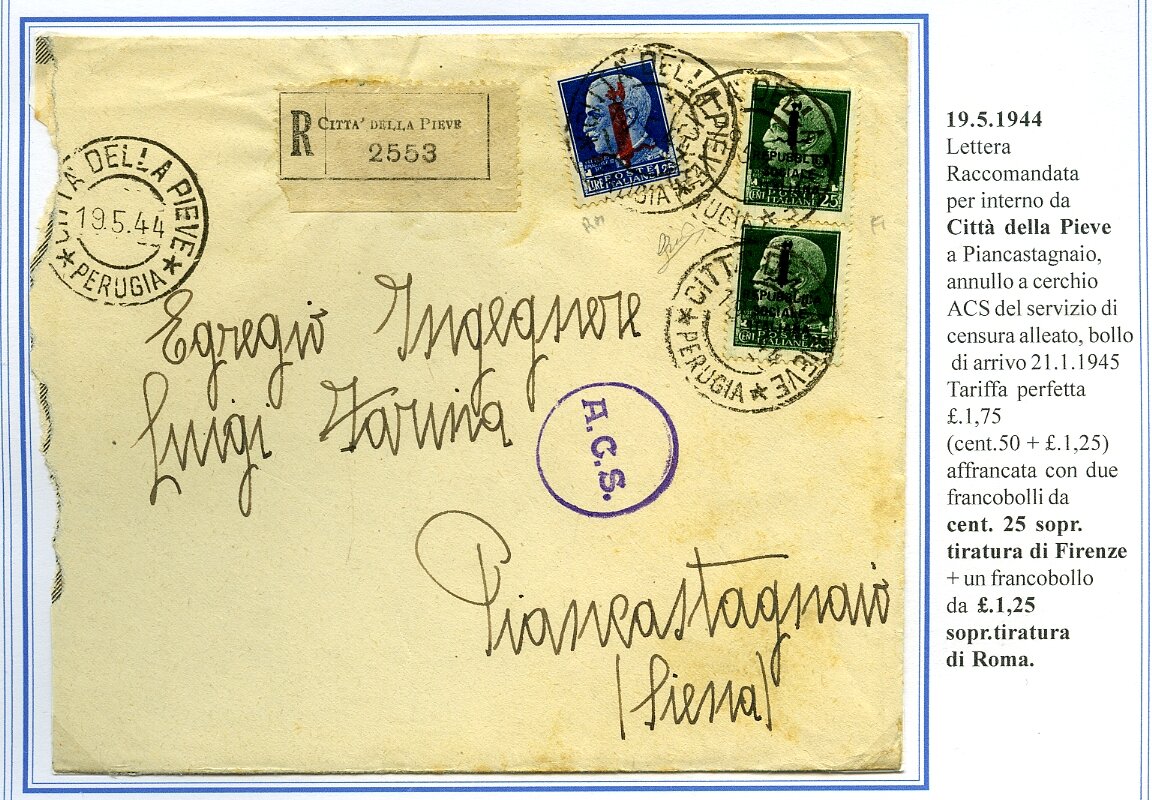 CITTA' DELLA PIEVE
19.5.44
PERUGIA
R CITTA' DELLA PIEVE
2553
LIRE 1,25
POSTE ITALIANE
REPUBBLICA
SOCIALE
ITALIANA
CENT. 25
POSTE ITALIANE
REPUBBLICA
SOCIALE
ITALIANA
CENT. 25
POSTE ITALIANE
CITTA' DELLA PIEVE
PERUGIA
Egregio Ingegnere
Luigi Farina
A.C.S.
Piancastagnaio
(Siena)
19.5.1944
Lettera
Raccomandata
per interno da
Città della Pieve
a Piancastagnaio,
annullo a cerchio
ACS del servizio di
censura alleato, bollo
di arrivo 21.1.1945
Tariffa perfetta
£.1,75
(cent.50 + £.1,25)
affrancata con due
francobolli da
cent. 25 sopr.
tiratura di Firenze
+ un francobollo
da £.1,25
sopr.tiratura
di Roma.